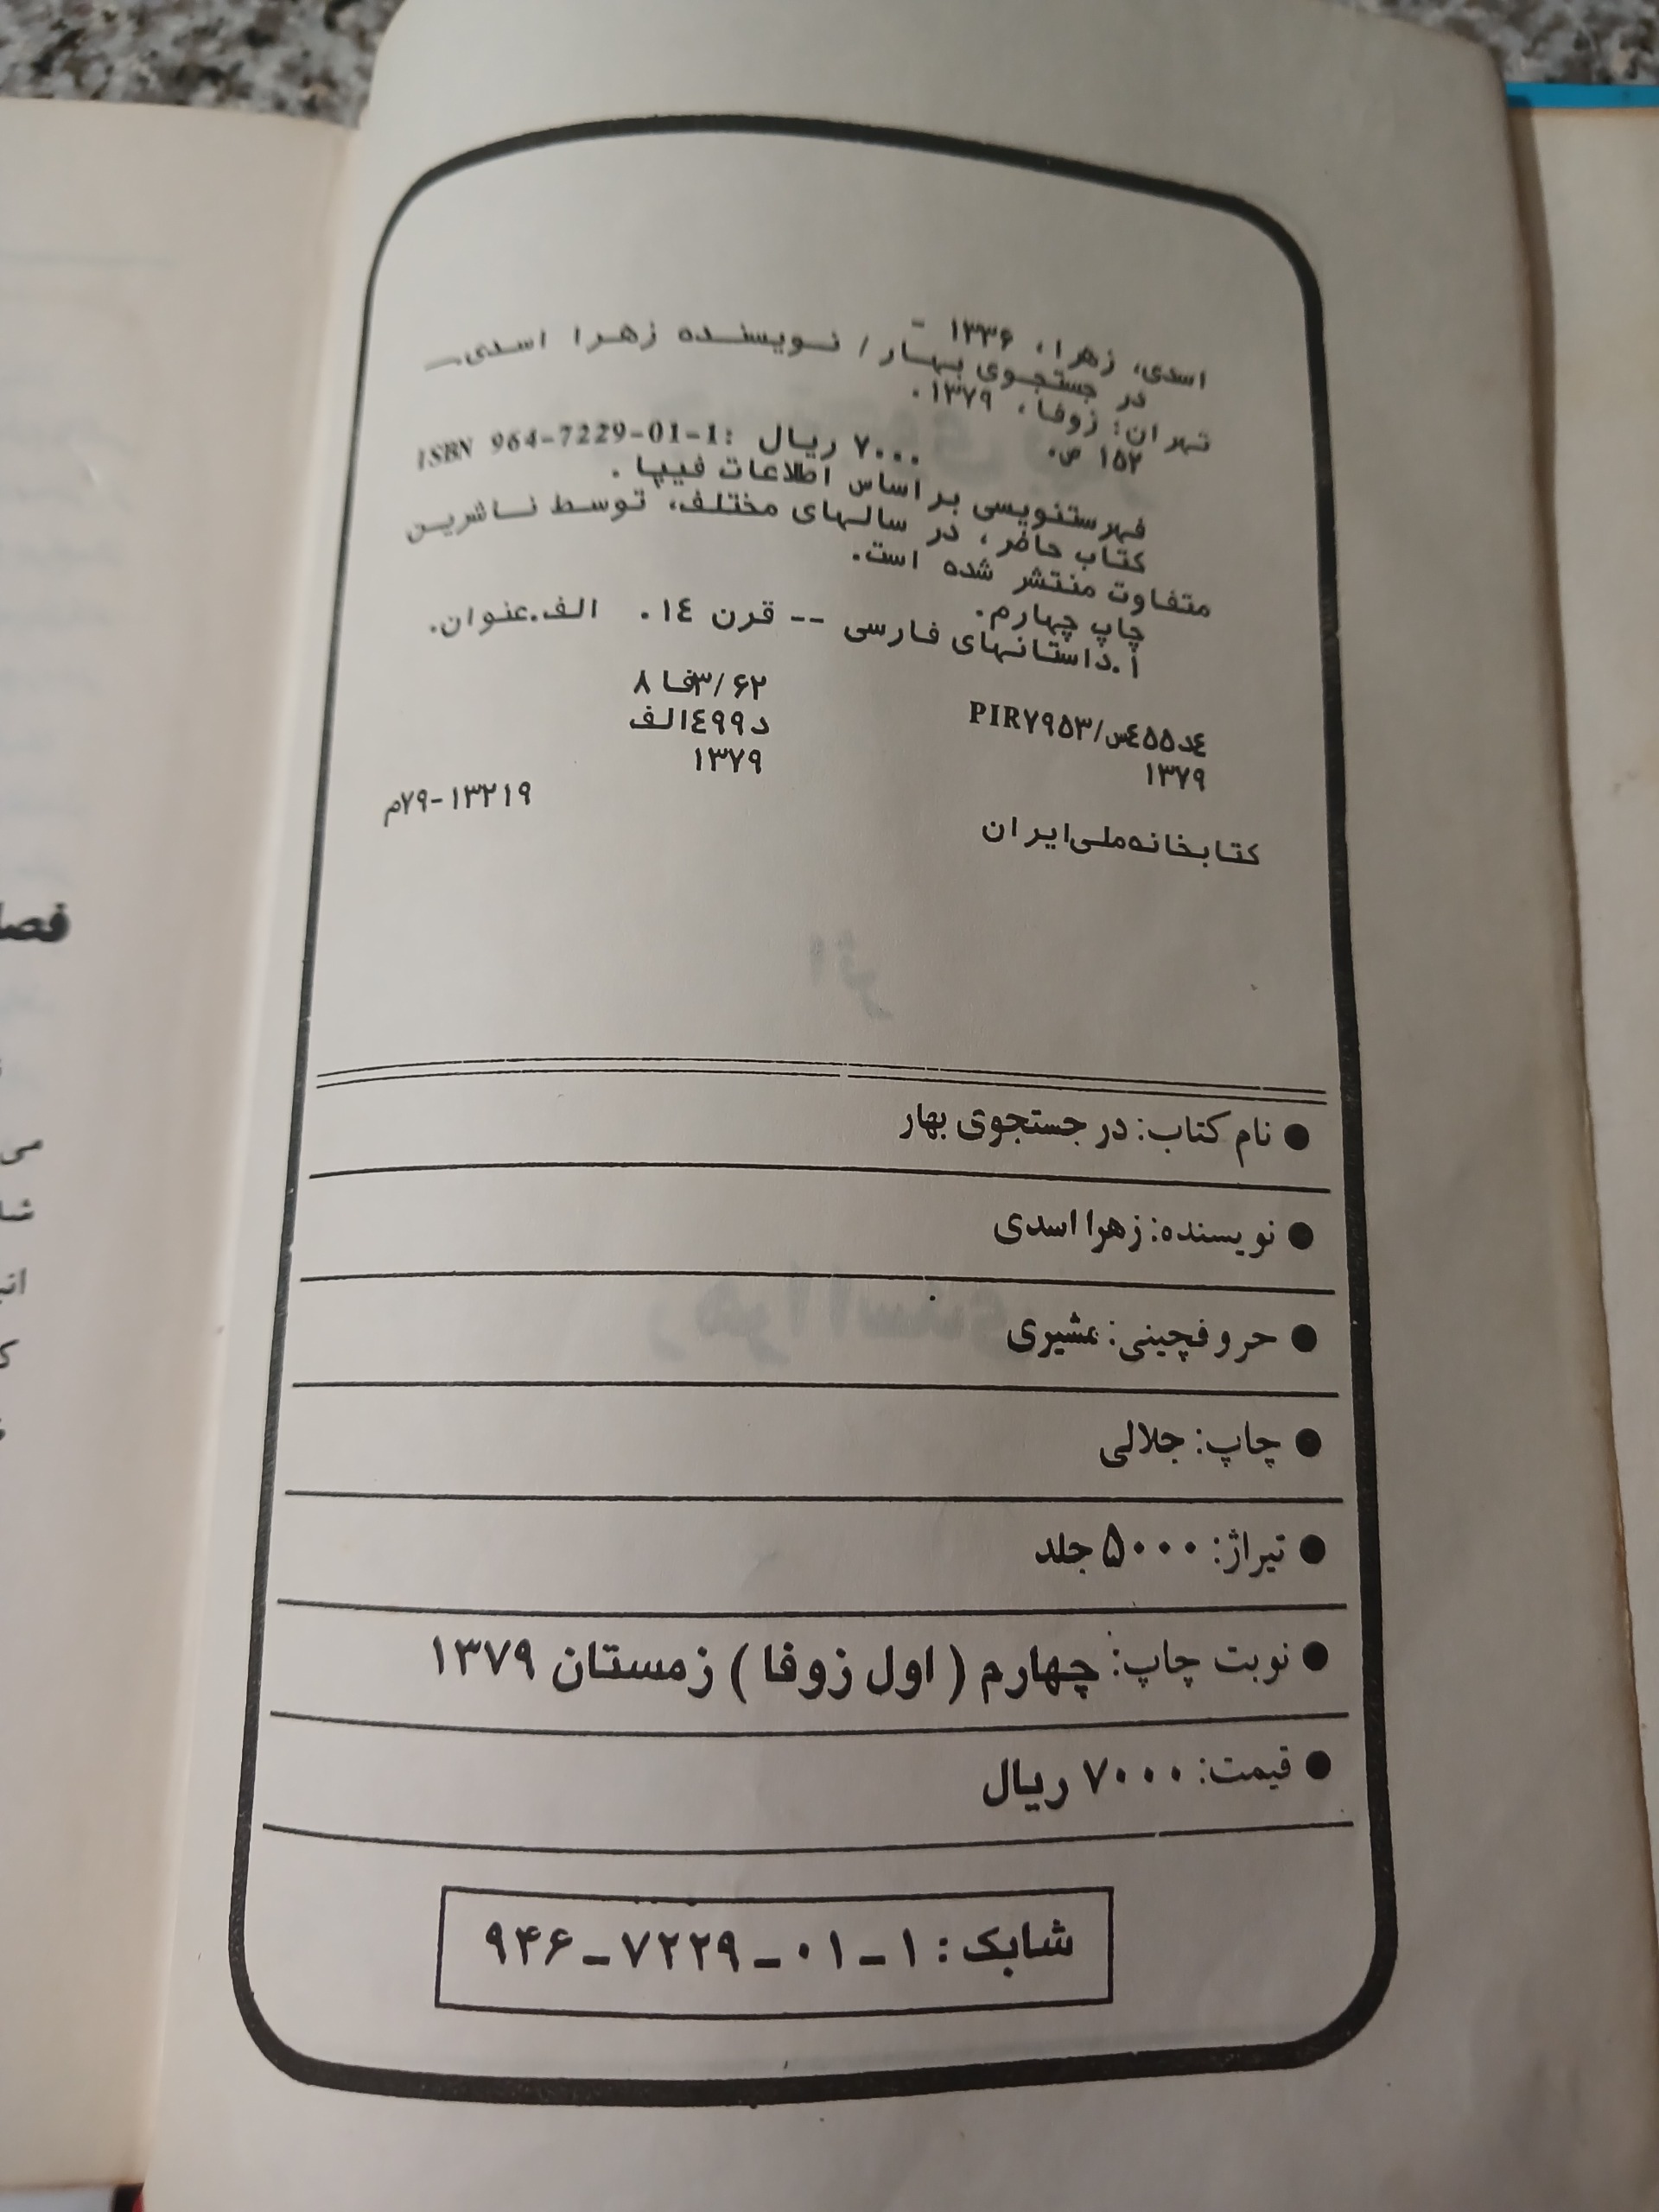 اسدی، زهرا، ۱۳۳۶ -
در جستجوی بهار / نویسنده زهرا اسدی._
تهران: زوفا، ۱۳۷۹.
۱۵۲ ص. ۷۰۰۰ ریال :ISBN 964-7229-01-1
فهرستنویسی بر اساس اطلاعات فیپا.
کتاب حاضر، در سالهای مختلف، توسط ناشرین
متفاوت منتشر شده است.
چاپ چهارم.
۱.داستانهای فارسی -- قرن ۱۴. الف.عنوان.
۴د۴۵۵س/PIR۷۹۵۳ ۸فا۳/۶۲
۱۳۷۹ د۴۹۹الف
۱۳۷۹
کتابخانه‌ملی‌ایران ۱۳۲۱۹-۷۹م
● نام کتاب: در جستجوی بهار
● نویسنده: زهرا اسدی
● حروفچینی: مشیری
● چاپ: جلالی
● تیراژ: ۵۰۰۰ جلد
● نوبت چاپ: چهارم ( اول زوفا ) زمستان ۱۳۷۹
● قیمت: ۷۰۰۰ ریال
شابک : ۱-۰۱-۷۲۲۹-۹۴۶
فصل
می
شا
انـ